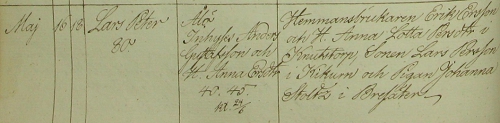 Maj 16 18 Lars Peter
80.
Äkt
Inhys. Anders
Gustafson och
H. Anna Ersdtr
40. 45.
Hemmansbrukaren Erik Ersson
och H. Anna Lotta Persdtr i
Knutstorp, Sonen Lars Persson
i Kikurn och Pigan Johanna
Stoltz i Bresäter